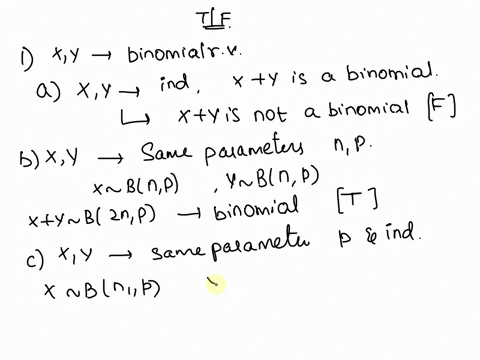 T/F
1) X,Y → binomial r.v.
a) X,Y → ind, X+Y is a binomial.
↳ X+Y is not a binomial [F]
b) X,Y → Same parameters n,p.
X~B(n,p) , Y~B(n,p)
X+Y~B(2n,p) → binomial [T]
c) X,Y → same parameter p & ind.
X ~B(n1,p)